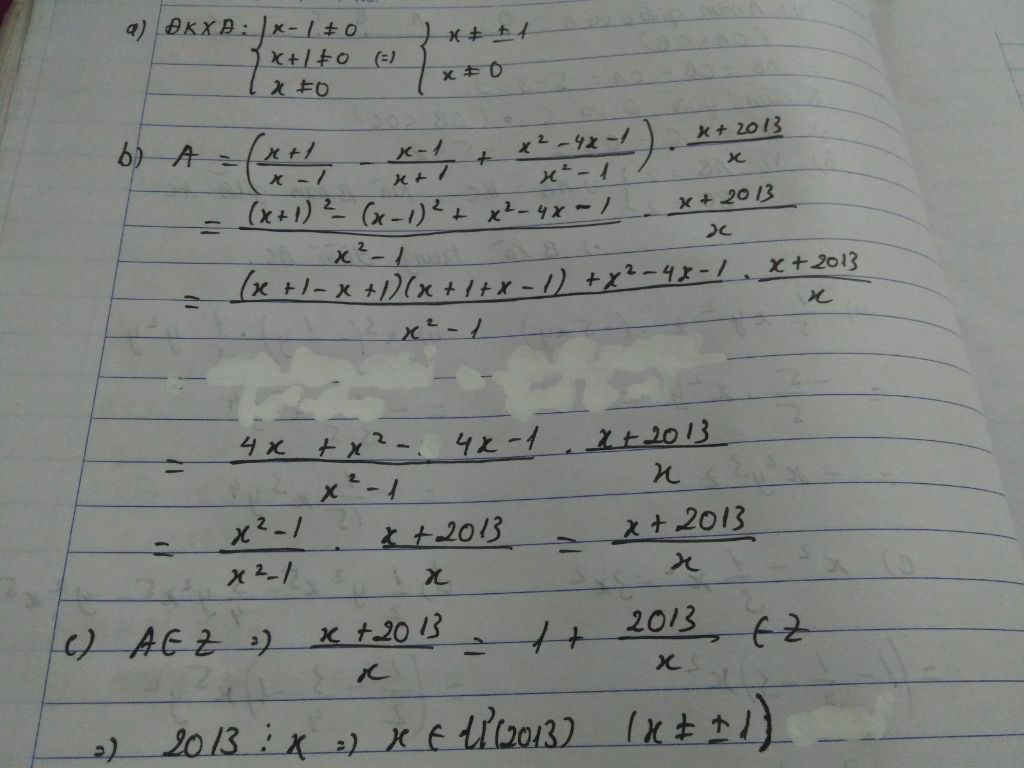 a) ĐKXĐ: { x-1 ≠ 0 } x ≠ ±1
{ x+1 ≠ 0 (=) }
{ x ≠ 0 } x ≠ 0
b) A = ( (x+1)/(x-1) - (x-1)/(x+1) + (x² - 4x - 1)/(x² - 1) ) . (x+2013)/x
= ((x+1)² - (x-1)² + x² - 4x - 1)/(x² - 1) . (x+2013)/x
= ((x+1-x+1)(x+1+x-1) + x² - 4x - 1)/(x² - 1) . (x+2013)/x
= (4x + x² - 4x - 1)/(x² - 1) . (x+2013)/x
= (x² - 1)/(x² - 1) . (x+2013)/x = (x+2013)/x
c) A ∈ Z => (x+2013)/x = 1 + 2013/x ∈ Z
=) 2013 ⋮ x =) x ∈ Ư(2013) (x ≠ ±1)